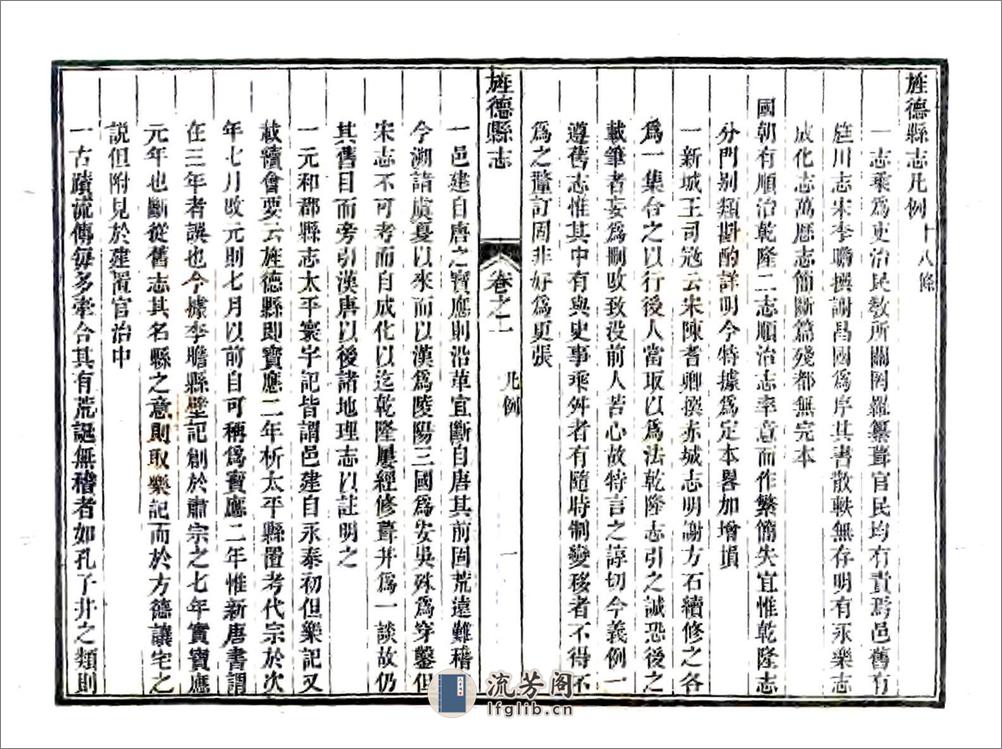 旌德縣志凡例 十八條
一志乘為吏治民教所關網羅纂葺官民均有責焉邑舊有
旌川志宋李瞻撰謝昌國為序其書散軼無存明有永樂志
成化志萬歷志簡斷篇殘都無完本
國朝有順治乾隆二志順治志率意而作繁簡失宜惟乾隆志
分門别類斟酌詳明今特據為定本畧加增損
一新城王司寇云宋陳耆卿撰赤城志明謝方石續修之各
為一集合之以行後人當取以為法乾隆志引之誠恐後之
載筆者妄為刪改致没前人苦心故特言之諄切今義例一
遵舊志惟其中有與史事乘舛者有隨時制變移者不得不
為之釐訂固非好為更張
旌德縣志
卷之一 凡例
一
一邑建自唐之寶應則沿革宜斷自唐其前固荒遠難稽但
今溯諸虞夏以來而以漢為陵陽三國為安吳殊為穿鑿但
宋志不可考而自成化以迄乾隆屢經修葺并為一談故仍
其舊目而旁引漢唐以後諸地理志以註明之
一元和郡縣志太平寰宇記皆謂邑建自永泰初但樂記又
載續會要云旌德縣即寶應二年析太平縣置考代宗於次
年七月改元則七月以前自可稱為寶應二年惟新唐書謂
在三年者誤也今據李瞻縣壁記創於肅宗之七年實寶應
元年也斷從舊志其名縣之意則取樂記而於方德讓宅之
説但附見於建置官治中
一古蹟流傳每多牽合其有荒誕無稽者如孔子井之類則
流芳閣
lfglib.cn